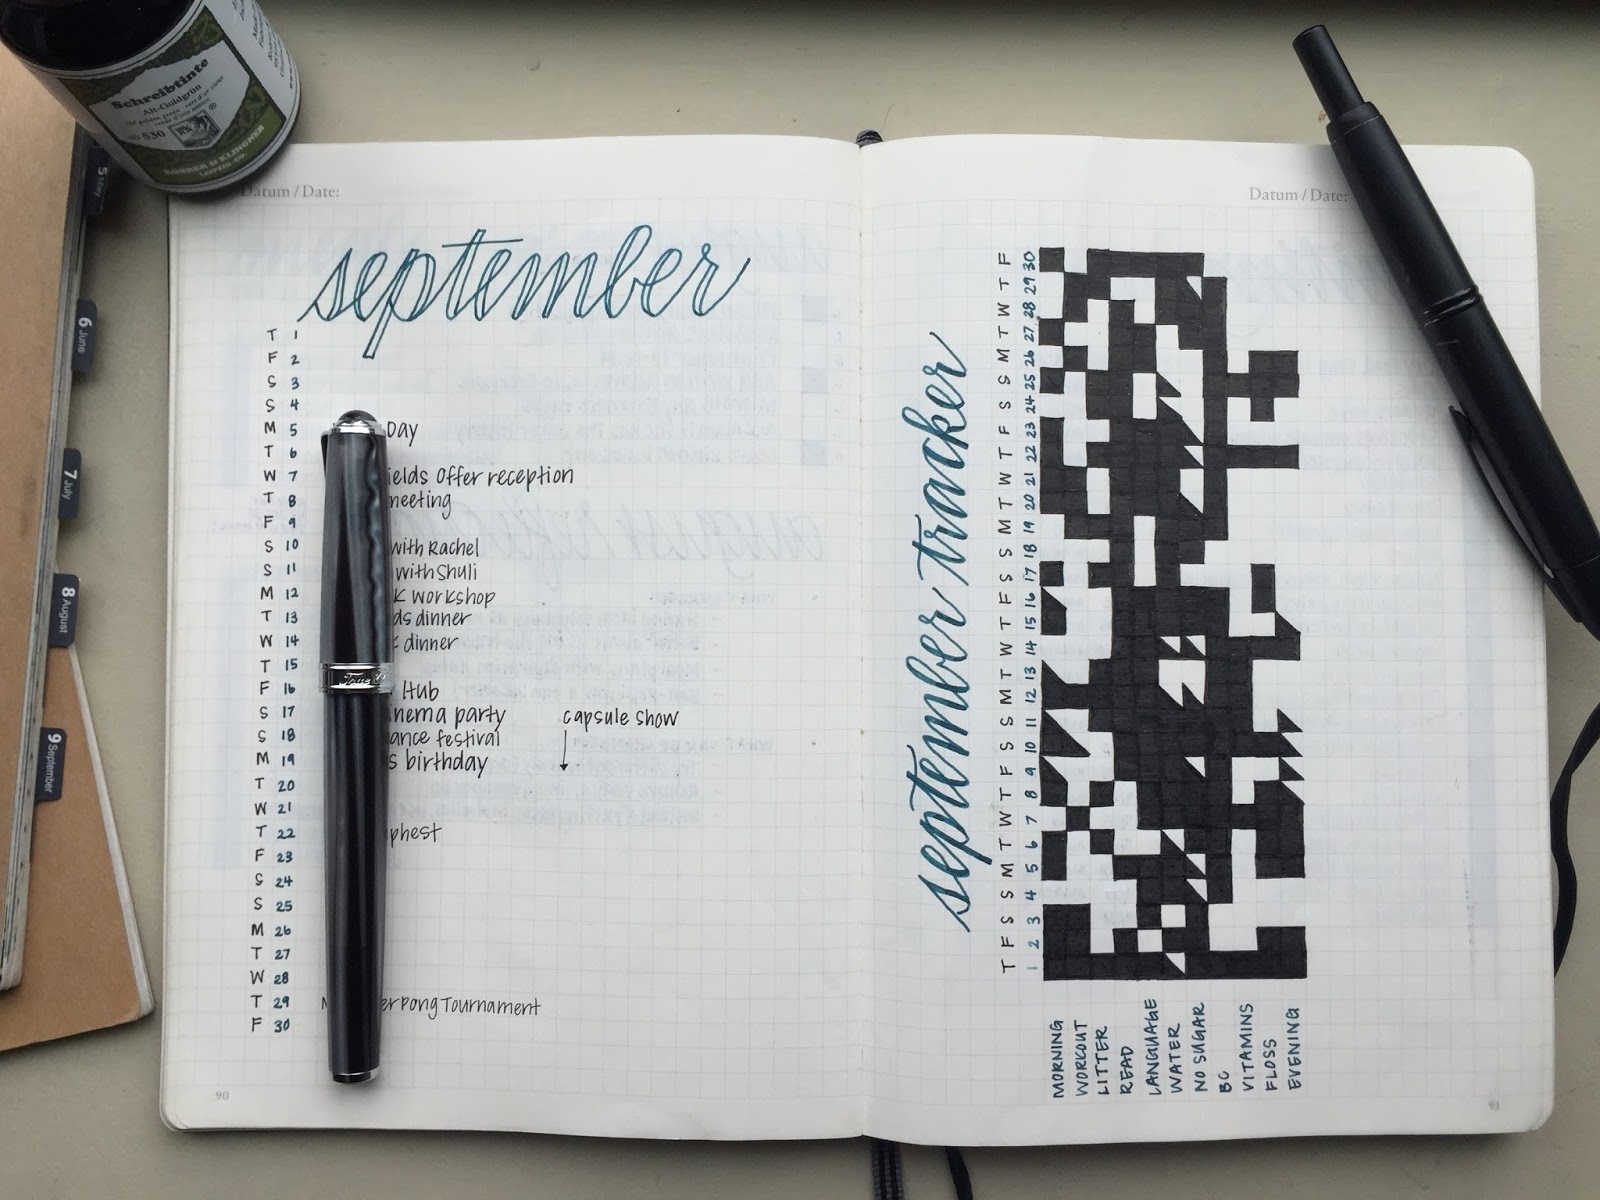 Schreibtinte
Alt-Goldgrün
old golden green
No 530
ROHRER & KLINGNER
LEIPZIG CO.
5 May
6 June
7 July
8 August
9 September
Datum / Date:
september
T 1
F 2
S 3
S 4
M 5 Day
T 6
W 7 ields Offer reception
T 8 meeting
F 9
S 10 with Rachel
S 11 with Shuli
M 12 K workshop
T 13 ds dinner
W 14 dinner
T 15
F 16 Hub
S 17 inema party capsule show
S 18 ance festival
M 19 s birthday
T 20
W 21
T 22 phest
F 23
S 24
S 25
M 26
T 27
W 28
T 29 er Pong Tournament
F 30
90
Datum / Date:
september tracker
T F S S M T W T F S S M T W T F S S M T W T F S S M T W T F
1 2 3 4 5 6 7 8 9 10 11 12 13 14 15 16 17 18 19 20 21 22 23 24 25 26 27 28 29 30
MORNING
WORKOUT
LITTER
READ
LANGUAGE
WATER
NO SUGAR
BC
VITAMINS
FLOSS
EVENING
91